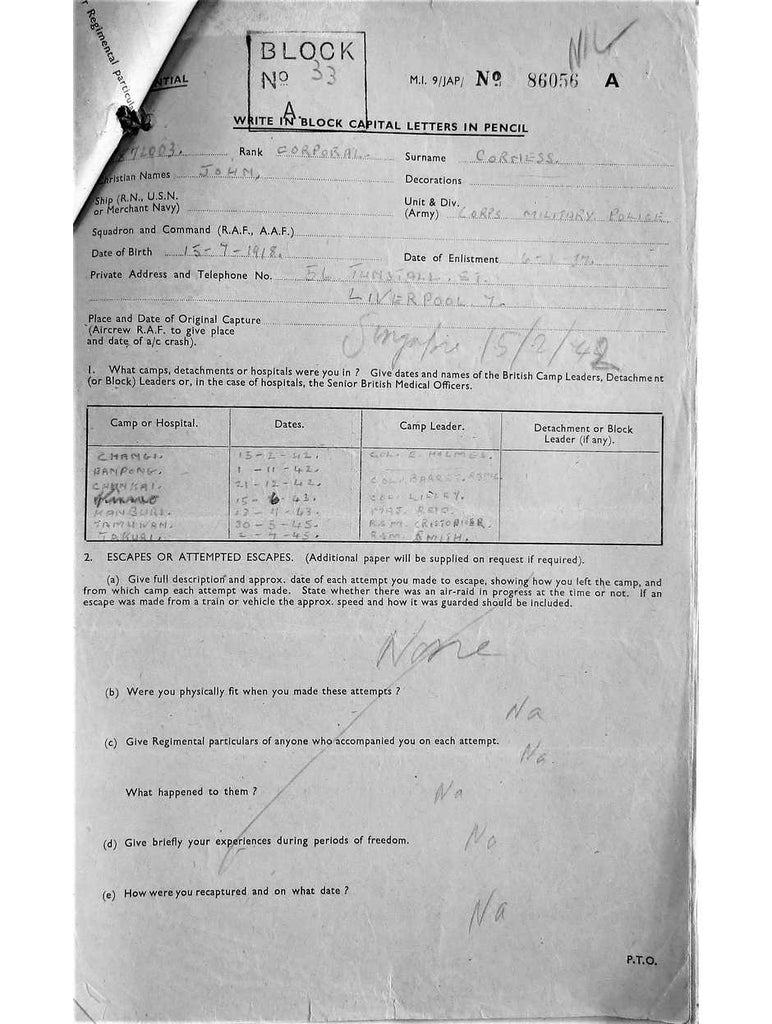 Regimental particula
NTIAL
BLOCK
No 33
A
NIL
M.I. 9/JAP/ No 86056 A
WRITE IN BLOCK CAPITAL LETTERS IN PENCIL
Rank CORPORAL. Surname CORNESS.
Christian Names JOHN, Decorations
Ship (R.N., U.S.N.
or Merchant Navy)
Unit & Div.
(Army) CORPS MILITARY POLICE
Squadron and Command (R.A.F., A.A.F.)
Date of Birth 15-7-1918. Date of Enlistment
Private Address and Telephone No. 56 TUNSTALL ST.
LIVERPOOL 7.
Place and Date of Original Capture
(Aircrew R.A.F. to give place
and date of a/c crash).
Singapore 15/2/42
1. What camps, detachments or hospitals were you in ? Give dates and names of the British Camp Leaders, Detachment
(or Block) Leaders or, in the case of hospitals, the Senior British Medical Officers.
Camp or Hospital. Dates. Camp Leader. Detachment or Block
Leader (if any).
CHANGI. 15-2-42. COL. E. HOLMES.
BANPONG. 1-11-42.
CHUNKAI. 21-12-42. COL.
15-6-43. COL. LILLEY.
KANBURI. MAJ. REID.
TAMUWAN. 30-5-45. R.S.M. CRISTOPHER.
TAKURI. 2-7-45. R.S.M. SMITH.
2. ESCAPES OR ATTEMPTED ESCAPES. (Additional paper will be supplied on request if required).
(a) Give full description and approx. date of each attempt you made to escape, showing how you left the camp, and
from which camp each attempt was made. State whether there was an air-raid in progress at the time or not. If an
escape was made from a train or vehicle the approx. speed and how it was guarded should be included.
None
(b) Were you physically fit when you made these attempts ?
Na
(c) Give Regimental particulars of anyone who accompanied you on each attempt.
Na
What happened to them ? Na
(d) Give briefly your experiences during periods of freedom. Na
(e) How were you recaptured and on what date ?
Na
P.T.O.